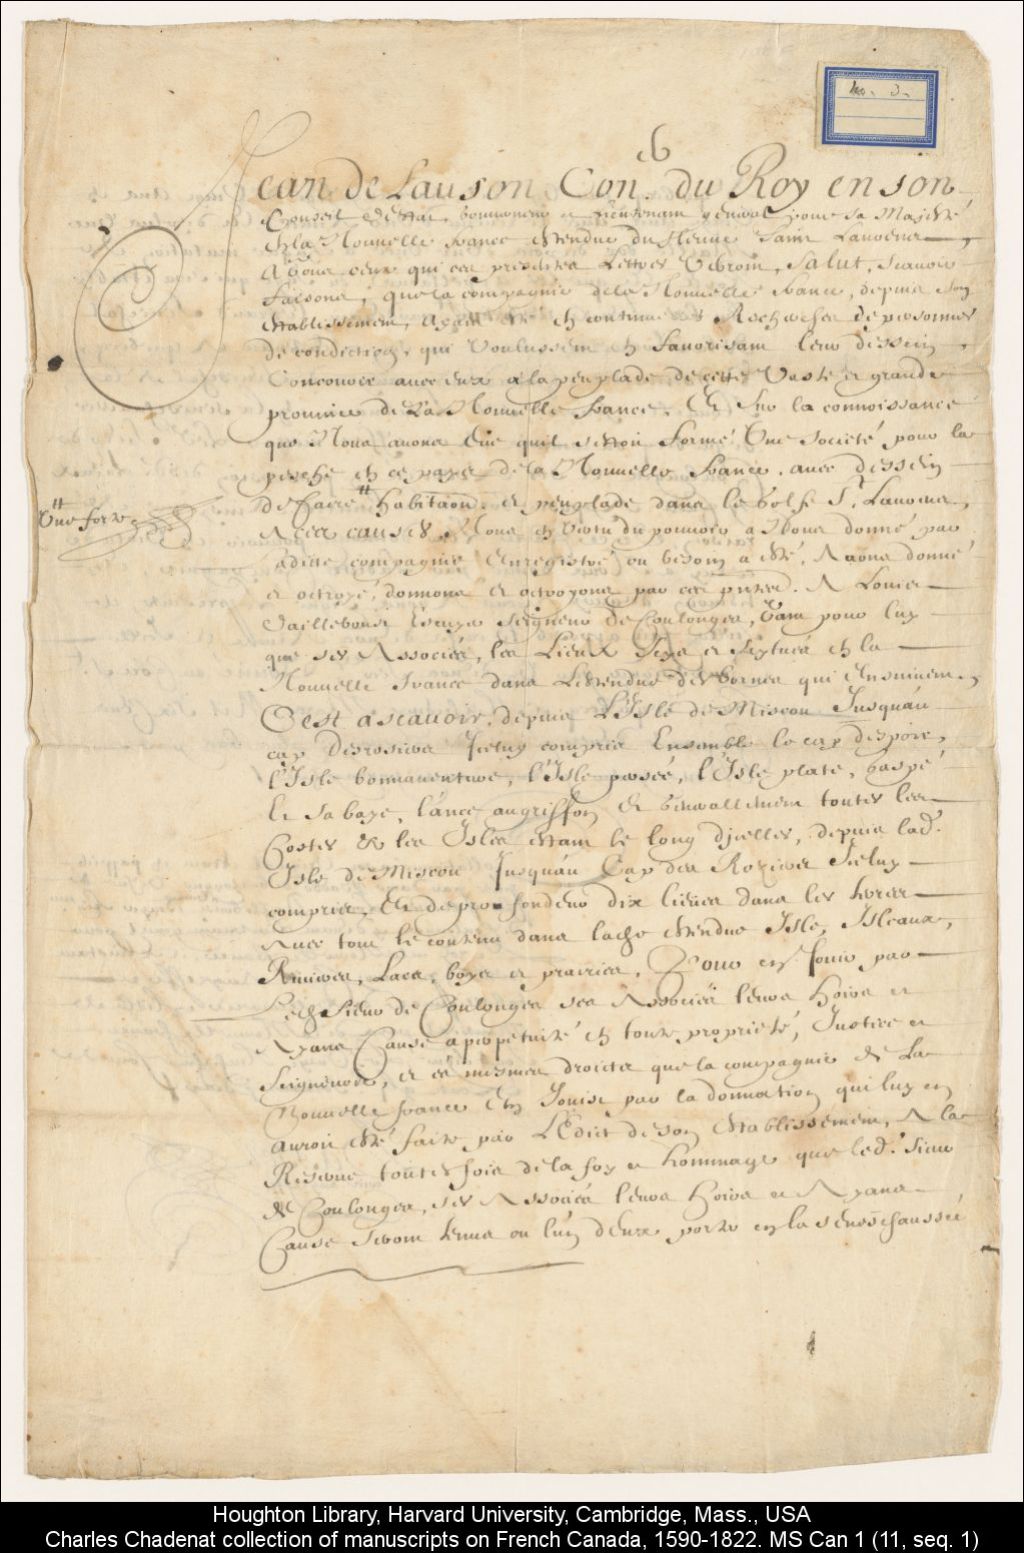 No. 3.
Jean de Lauson Con.er du Roy en son
Conseil d'Estat, Gouverneur et Lieutenant general pour sa Majesté
En la Nouvelle France estendue du fleuve Saint Laurens,
A Tous ceux qui ces presentes Lettres Verront, Salut, scavoir
faisons, que la compagnie de la Nouvelle France, depuis son
establissement, ayant esté en continuelles Recherches de personnes
de condiction, qui Voulussent en favorisant leur dessein,
Concourir avec eux a la peuplade de cette Vaste et grande
province de La Nouvelle france, Et sur la connoissance
que Nous avons Eue quil sestoit formé Une Societé pour la
pesche en ce pays de la Nouvelle france, avec dessein
de faire # habitaon. et peuplade dans le Golfe St. Laurens,
# Une forte
A ces causes, Nous en Vertu du pouvoir a Nous donné par
ladicte compagnie Enregistré ou besoin a esté, Avons donné
et octroyé, donnons et octroyons par ces pntes. A Louis
Daillebout Escuyer Seigneur de Coulonges, Tant pour luy
que ses Associés, les Lieux Sizes et scytués en la
Nouvelle france dans L'estendue des bornes qui Ensuivent,
C'est ascavoir, depuis L'Isle de Miscou Jusqu'au
cap Desrosiers Jceluy compris Ensemble le cap despoir,
l'Isle bonnaventure, l'Isle persée, l'Isle plate, Gaspé
Et sa baye, l'ance au griffon Et Generallement toutes les
Costes Et les Isles estant le long d'jcelles, depuis lad.
Isle de Miscou Jusqu'au Cap des Roziers Jceluy
compris, Et de profondeur dix lieues dans les terres
Avec tout le contenu dans lade. estendue Isle, Isleaux,
Rivieres, Lacs, boys et prairies, Pour en Jouir par
led. Sieur de Coulonges ses Associés leurs hoirs et
Ayans Cause a perpetuité en toute proprieté, Justice et
Seigneurie, et és mesmes droicts que la compagnie de La
Nouvelle france En Jouist par la donnation qui luy en
auroit esté faite par L'Edict de son establissement, A la
Reserve toutesfois de la foy et hommage que led. sieur
de Coulonges, ses Associés leurs hoirs et Ayans
Cause seront tenus ou l'un d'eux porter en la seneschaussée
Houghton Library, Harvard University, Cambridge, Mass., USA
Charles Chadenat collection of manuscripts on French Canada, 1590-1822. MS Can 1 (11, seq. 1)